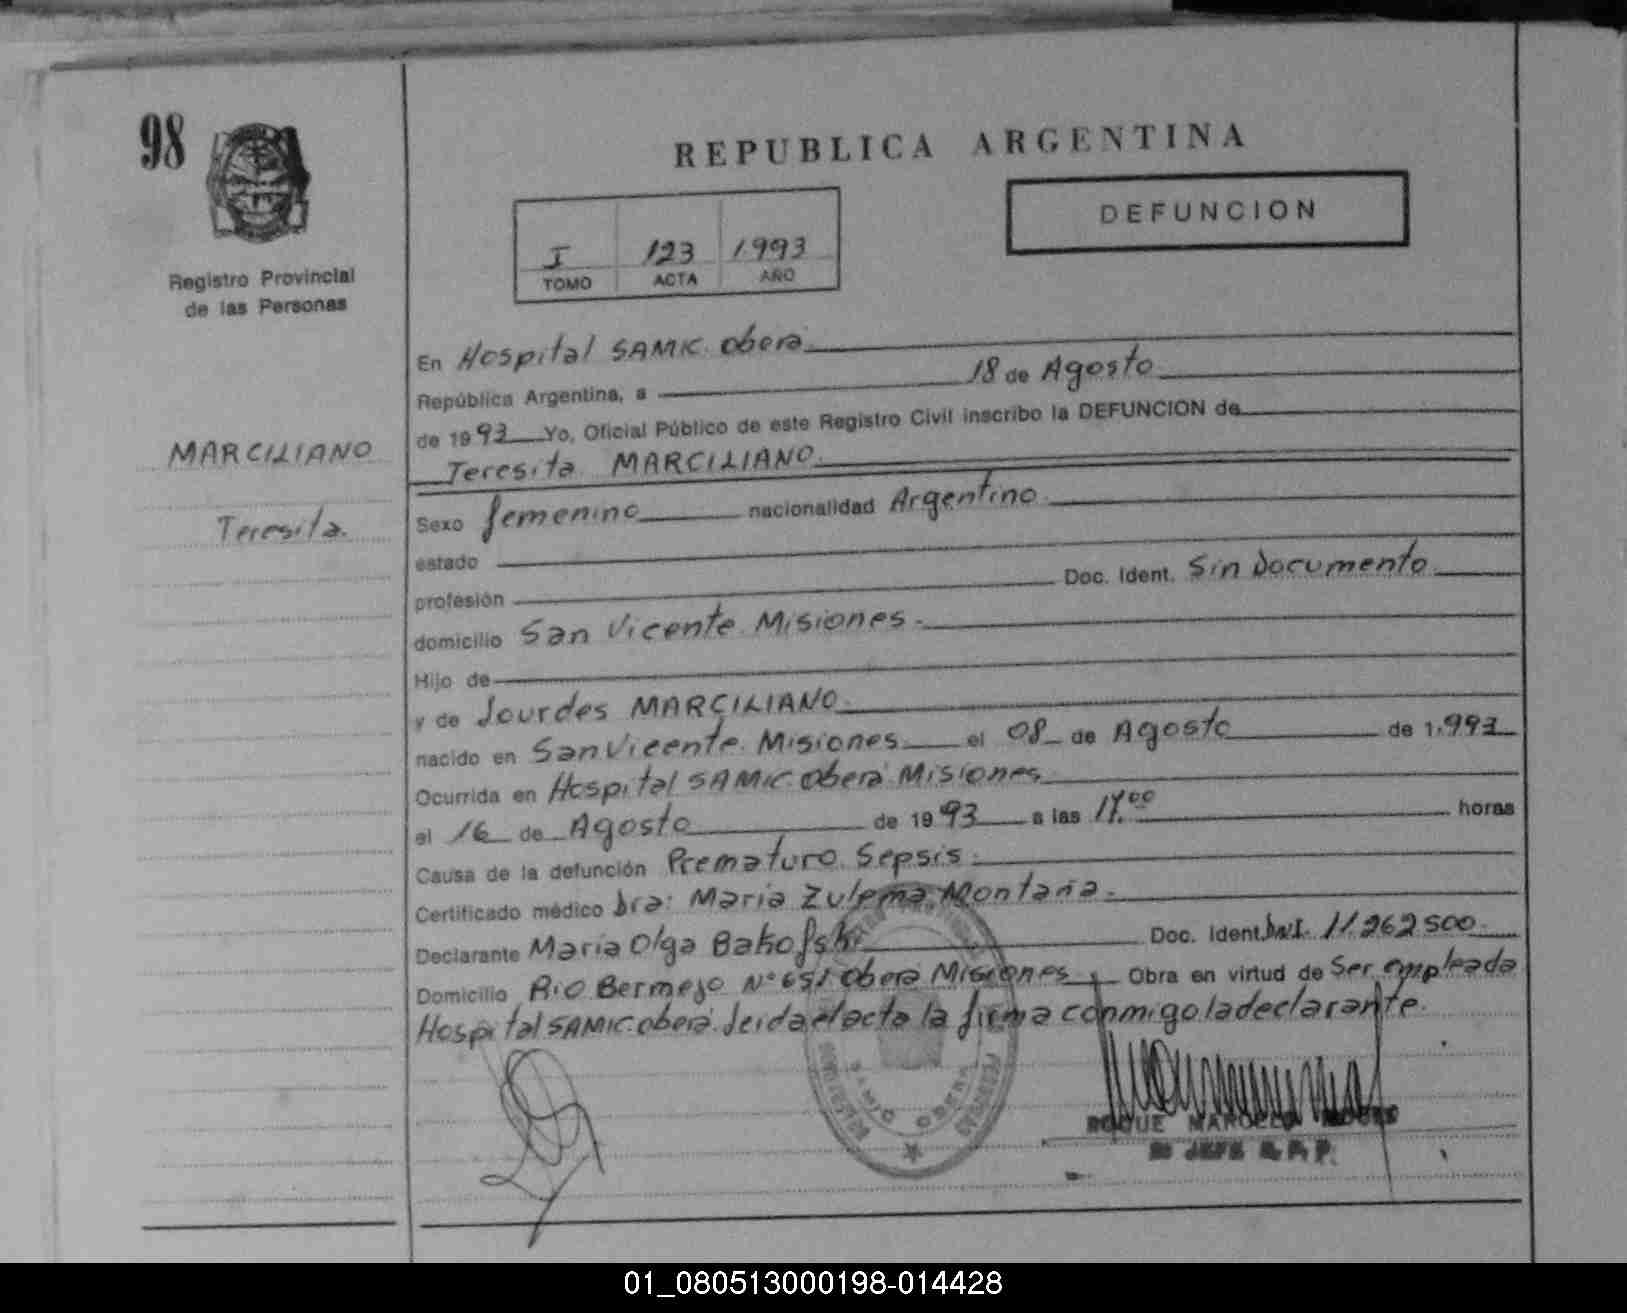 98
REPUBLICA ARGENTINA
DEFUNCION
I 123 1.993
TOMO ACTA AÑO
Registro Provincial
de las Personas
MARCILIANO
Teresita.
En Hospital SAMIC. Oberá
República Argentina, a 18 de Agosto
de 1993 Yo, Oficial Público de este Registro Civil inscribo la DEFUNCION de
Teresita MARCILIANO.
Sexo femenino nacionalidad Argentino.
estado
profesión Doc. Ident. Sin Documento
domicilio San Vicente. Misiones.
Hijo de
y de Lourdes MARCILIANO.
nacido en San Vicente. Misiones el 08 de Agosto de 1.993
Ocurrida en Hospital SAMIC. Oberá Misiones
el 16 de Agosto de 1993 a las 17.00 horas
Causa de la defunción Prematuro. Sepsis.
Certificado médico Dra: Maria Zulema Montaña.
Declarante Maria Olga Bakofski Doc. Ident. D.N.I. 11.262500.
Domicilio Rio Bermejo N° 651 Oberá Misiones Obra en virtud de Ser empleada
Hospital SAMIC. Oberá. Leida el acta la firma conmigo la declarante.
SAMIC OBERA
ROQUE MARCELO
JEFE R. P. P.
01_080513000198-014428